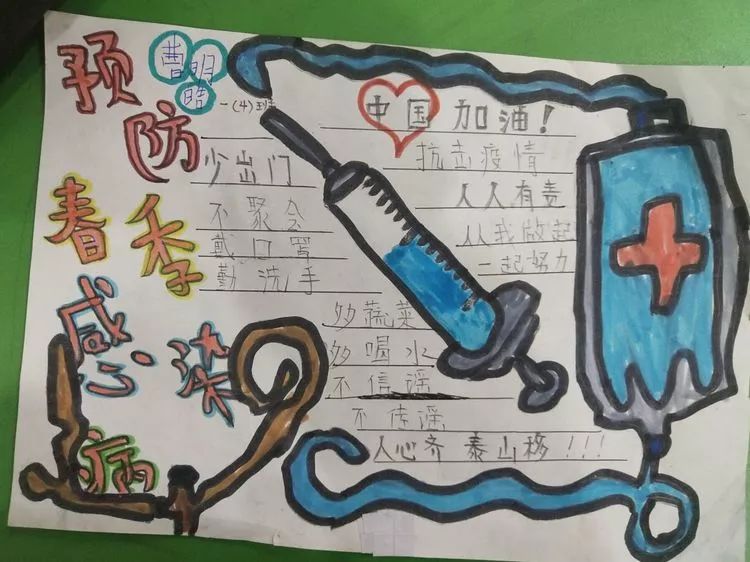 预防
春季
感染
病
曹明晧
一(4)班
中国加油!
抗击疫情
人人有责
从我做起
一起努力
少出门
不聚会
戴口罩
勤洗手
多蔬菜
多喝水
不信谣
不传谣
人心齐 泰山移!!!